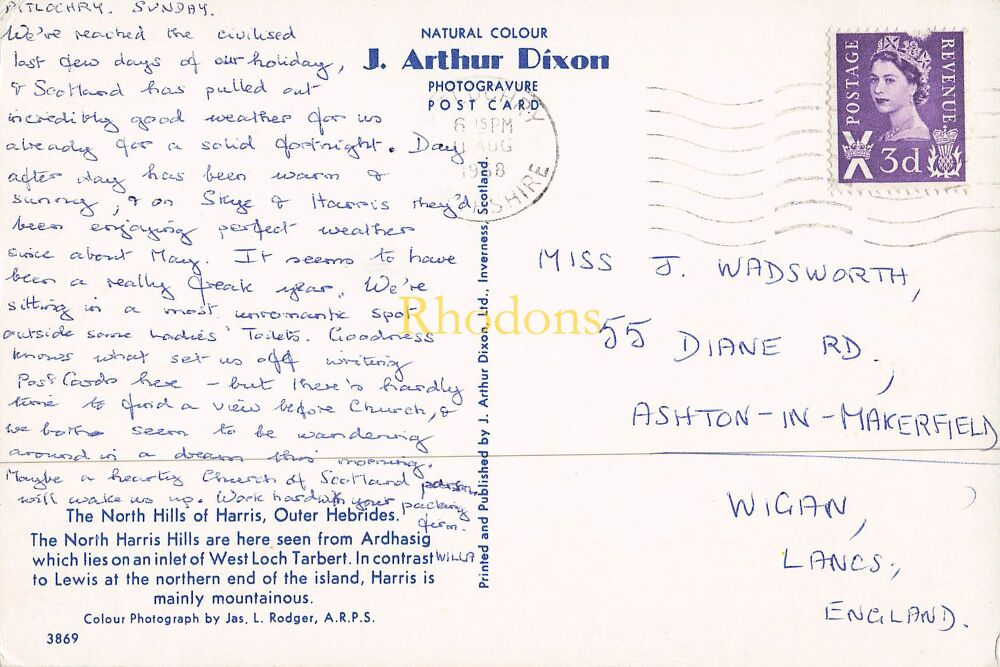 PITLOCHRY. SUNDAY.
We've reached the civilised
last few days of our holiday,
& Scotland has pulled out
incredibly good weather for us
already for a solid fortnight. Day
after day has been warm &
sunny, & on Skye & Harris they'd
been enjoying perfect weather
since about May. It seems to have
been a really freak year. We're
sitting in a most unromantic spot
outside some Ladies' Toilets. Goodness
knows what set us off writing
Post Cards here – but there's hardly
time to find a view before Church, &
we both seem to be wandering
around in a dream this morning.
Maybe a hearty Church of Scotland parson
will wake us up. Work hard with your packing
firm.
WILLA
The North Hills of Harris, Outer Hebrides.
The North Harris Hills are here seen from Ardhasig
which lies on an inlet of West Loch Tarbert. In contrast
to Lewis at the northern end of the island, Harris is
mainly mountainous.
Colour Photograph by Jas. L. Rodger, A.R.P.S.
3869
NATURAL COLOUR
J. Arthur Dixon
PHOTOGRAVURE
POST CARD
Printed and Published by J. Arthur Dixon, Ltd., Inverness, Scotland.
6 15 PM
AUG
1968
SHIRE
POSTAGE
REVENUE
3d
MISS J. WADSWORTH,
55 DIANE RD.,
ASHTON-IN-MAKERFIELD
WIGAN,
LANCS.,
ENGLAND.
Rhodons